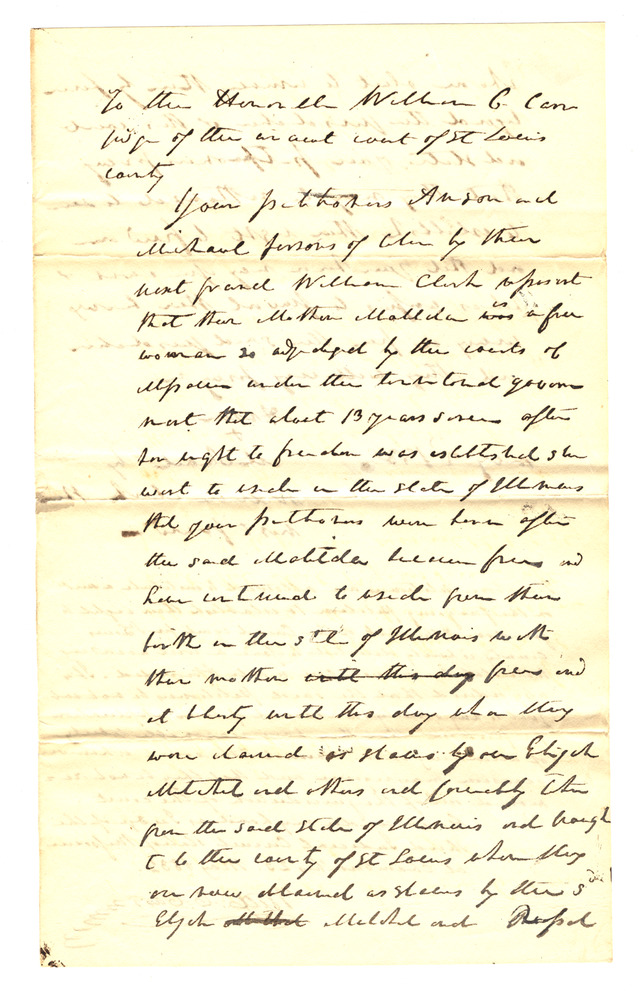 To the Honorable William C Carr
judge of the circuit court of St Louis
county
Your petitioners Anson and
Michael persons of color by their
next friend William Clark represent
that their Mother Matilda is a free
woman so adjudged by the courts of
Missouri under the territorial govern
ment that about 13 years since after
her right to freedom was established she
went to reside in the state of Illinois
that your petitioners were born after
the said Matilda became free and
have continued to reside from their
birth in the state of Illinois with
their mother until this day free and
at liberty until this day when they
were claimed as slaves by one Elijah
Mitchel and others and forcibly taken
from the said state of Illinois and brough
t to the county of St Louis where they
are now claimed as slaves by the sd
Elijah Mitchel and